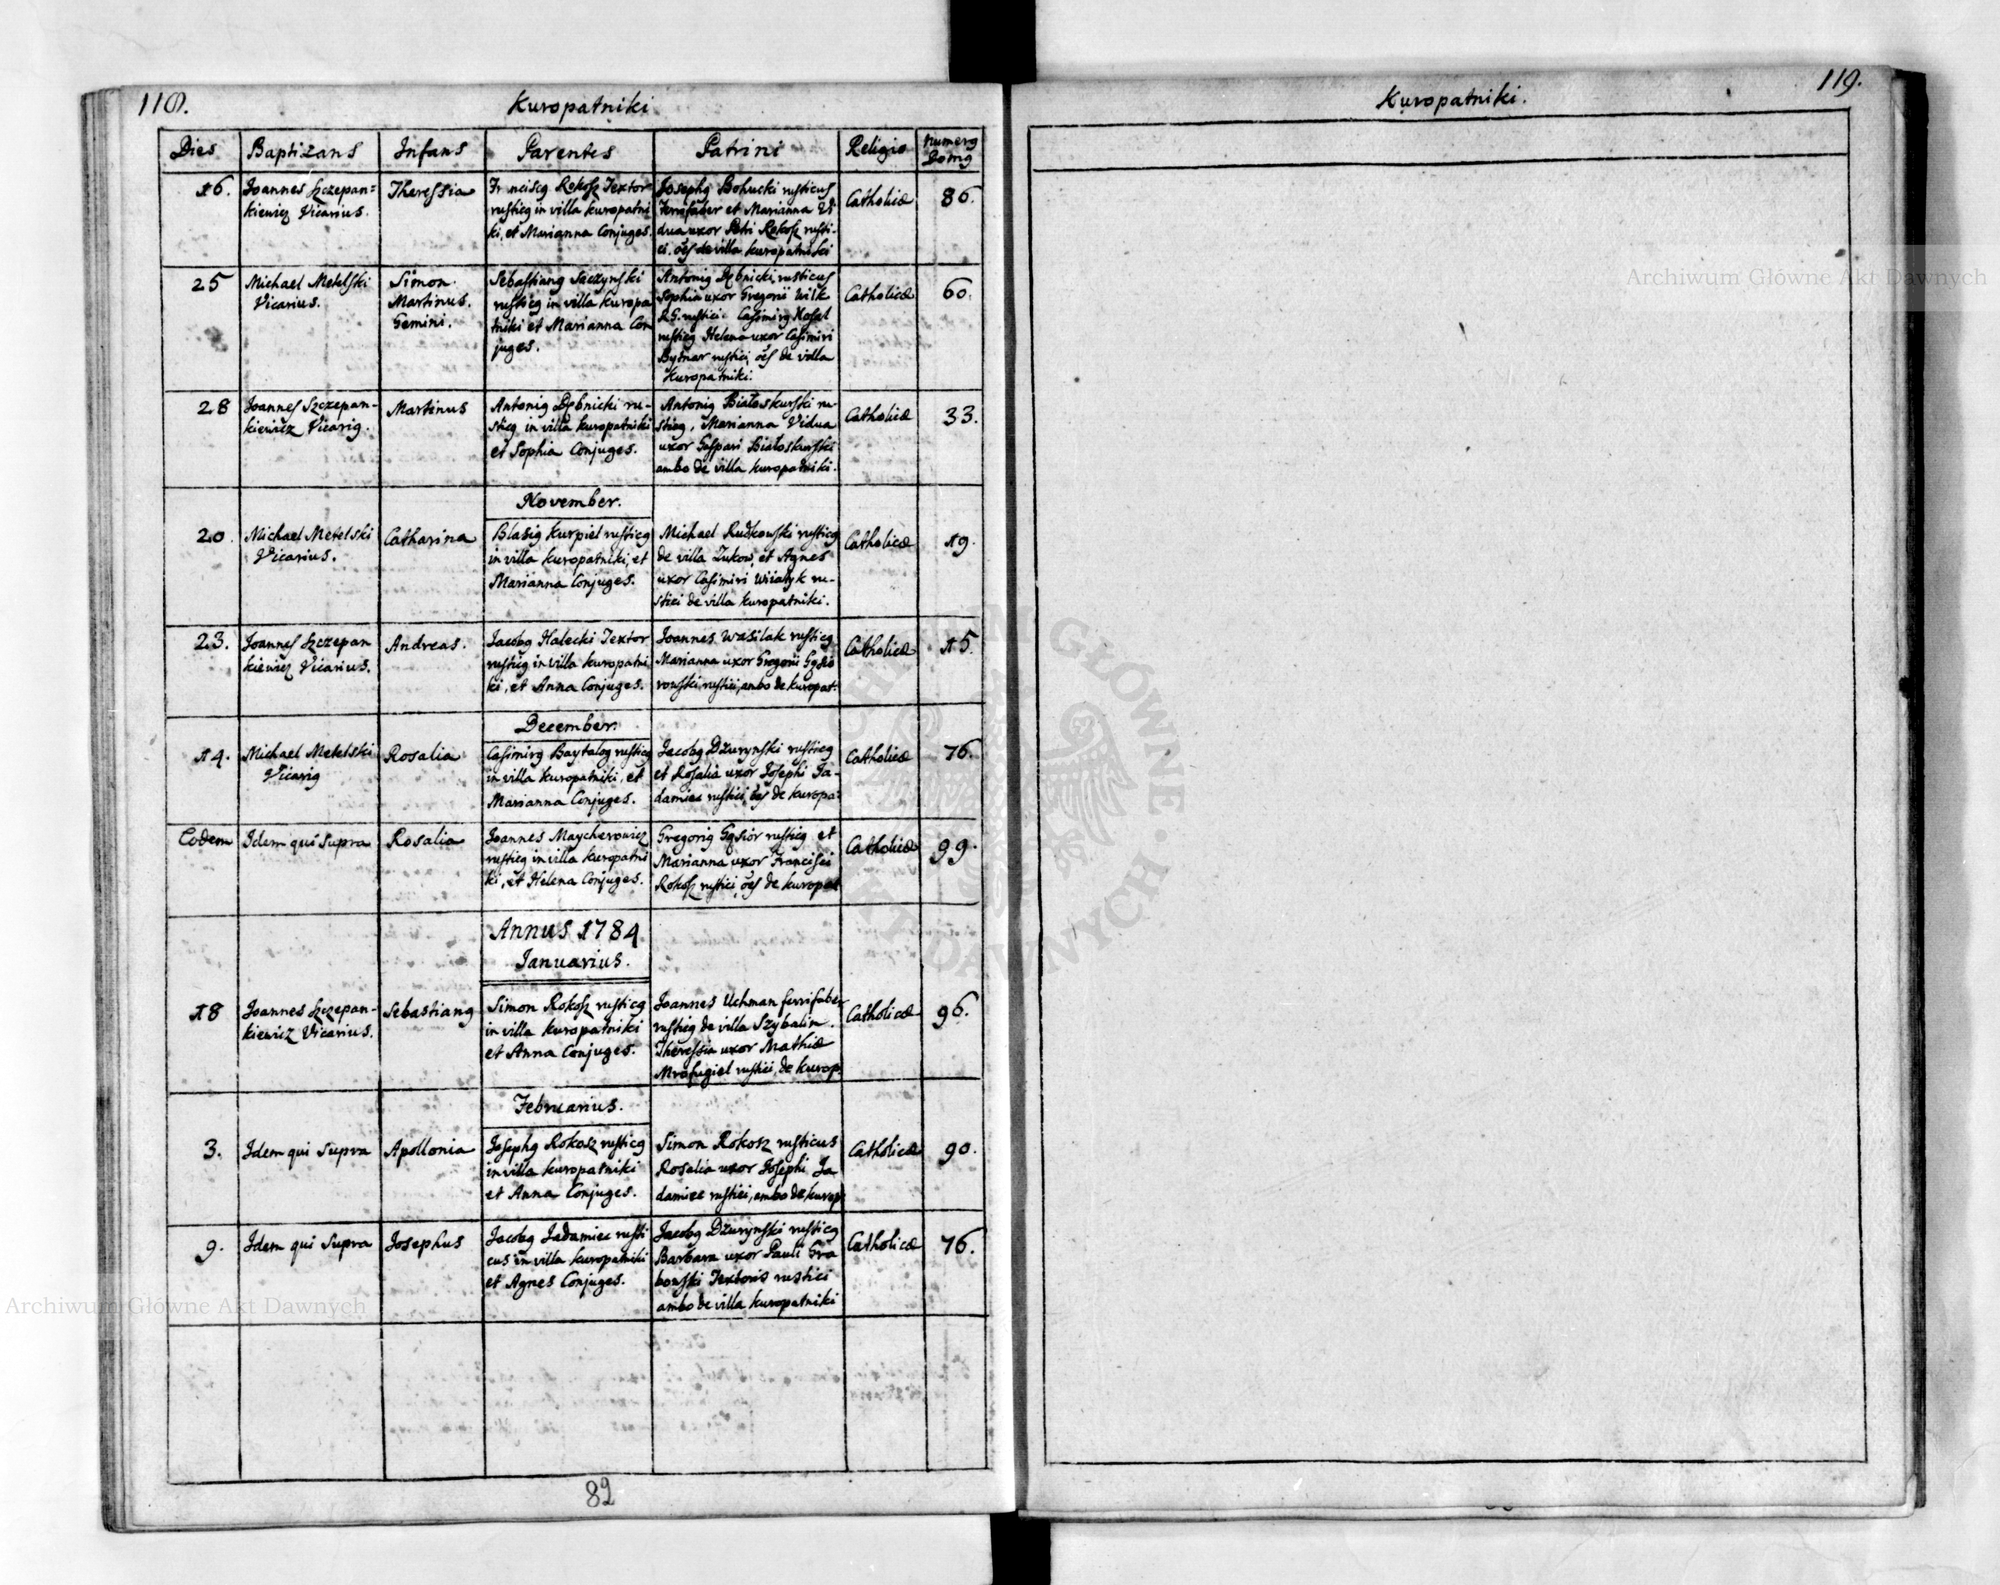 118.
Kuropatniki
Dies Baptizans Infans Parentes Patrini Religio Numerg Domg
16. Joannes Szczepan=
kiewicz Vicarius.
Theressia
Franciscg Rokosz Textor
rusticg in villa Kuropatni
ki, et Marianna Conjuges.
Josephg Bohucki rusticus
Ferrifaber et Marianna Vi
dua uxor Petri Rokosz rusti-
ci. oes de villa Kuropatniki
Catholicæ
86.
25 Michael Metelski
Vicarius.
Simon.
Martinus.
Gemini.
Sebastiang Saczynski
rusticg in villa Kuropa
tniki et Marianna Con
juges.
Antonig Dębnicki, rusticus
Sophia uxor Gregorii Wilk
R.G. rustici. Casimirg Kosel
rusticg Helena uxor Casimiri
Bydnar rustici, oes de villa
Kuropatniki.
Catholicæ
60.
28 Joannes Szczepan-
kiewicz Vicarig.
Martinus
Antonig Dębnicki ru-
sticg in villa Kuropatniki
et Sophia Conjuges.
Antonig Białoskurski ru-
sticg, Marianna Vidua
uxor Gaspari Białoskurski
ambo de villa Kuropatniki.
Catholicæ
33.
November.
20. Michael Metelski
Vicarius.
Catharina
Blasig Kurpiel rusticg
in villa Kuropatniki, et
Marianna Conjuges.
Michael Rudkowski rusticg
de villa Zukow, et Agnes
uxor Casimiri Wiiatyk ru-
stici de villa Kuropatniki.
Catholicæ
19.
23. Joannes Szczepan
kiewicz Vicarius.
Andreas.
Jacobg Halecki Textor
rusticg in villa Kuropatni
ki, et Anna Conjuges.
Joannes Wasilak rusticg
Marianna uxor Gregorii Gąsio
rowski, rustici, ambo de Kuropat:
Catholicæ
15.
December.
14. Michael Metelski
Vicarig
Rosalia
Casimirg Baytalog rusticg
in villa Kuropatniki, et
Marianna Conjuges.
Jacobg Dzurynski rusticg
et Rosalia uxor Josephi Ja-
damiec rustici, oes de Kuropa:
Catholicæ
76.
Eodem Idem qui Supra
Rosalia
Joannes Maycherowicz
rusticg in villa Kuropatni
ki, et Helena Conjuges.
Gregorig Gąsior rusticg et
Marianna uxor Francisci
Rokosz rustici, oes de Kuropat
Catholicæ
99.
Annus 1784
Januarius.
18 Joannes Szczepan-
kiewicz Vicarius.
Sebastiang
Simon Rokosz rusticg
in villa Kuropatniki
et Anna Conjuges.
Joannes Uchman ferrifaber
rusticg de villa Szybalin.
Theressia uxor Mathiæ
Mrofugiel rustici, de Kurop.
Catholicæ
96.
Februarius.
3. Idem qui Supra
Apollonia
Josephg Rokosz rusticg
in villa Kuropatniki
et Anna Conjuges.
Simon Rokosz rusticus
Rosalia uxor Josephi Ja
damiec rustici, ambo de Kurop
Catholicæ
90.
9. Idem qui Supra
Josephus
Jacobg Jadamiec rusti
cus in villa Kuropatniki
et Agnes Conjuges.
Jacobg Dzurynski rusticg
Barbara uxor Pauli Gra
bowski Textoris rustici
ambo de villa Kuropatniki
Catholicæ
76.
82
Kuropatniki.
119.
Archiwum Główne Akt Dawnych
Archiwum Główne Akt Dawnych